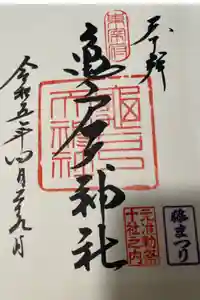 奉拝
東宰府
龜戸天神社
龜戸天神社
令和五年四月二十九日
元准勅祭
十社之内
藤まつり